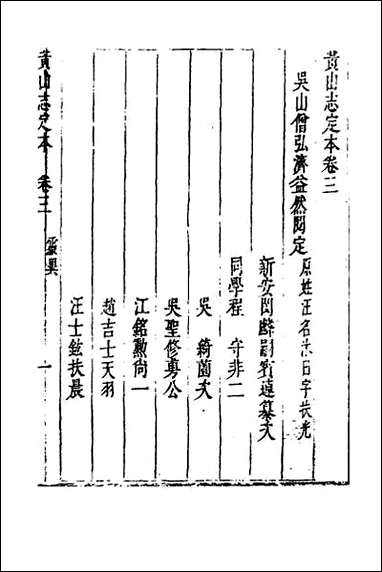 黃山志定本卷三
吳山僧弘濟益然閱定 原姓汪名沐日字扶光
新安閔麟嗣賓連纂次
同學程 守非二
吳 綺薗次
吳聖修勇公
江銘勳尙一
趙吉士天羽
汪士鈜扶晨
黃山志定本 卷三 靈異 一